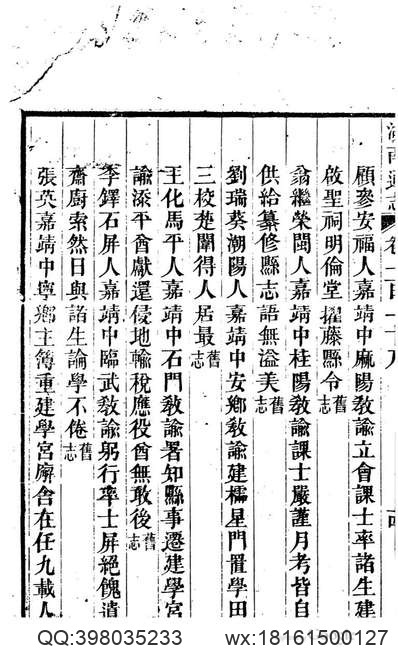 湖南通志
顧參安福人嘉靖中麻陽教諭立會課士率諸生建
啟聖祠明倫堂擢藤縣令舊志
翁繼榮閩人嘉靖中桂陽教諭課士嚴謹月考皆自
供給纂修縣志語無溢美舊志
劉瑞葵潮陽人嘉靖中安鄉教諭建櫺星門置學田
三校楚闈得人居最舊志
王化馬平人嘉靖中石門教諭署知縣事遷建學宮
諭添平酋獻還侵地輸稅應役酋無敢後舊志
李鐸石屏人嘉靖中臨武教諭躬行率士屏絕餽遺
齋廚索然日與諸生論學不倦舊志
張英嘉靖中寧鄉主簿重建學宮廨舍在任九載人
QQ:398035233
wx:18161500127